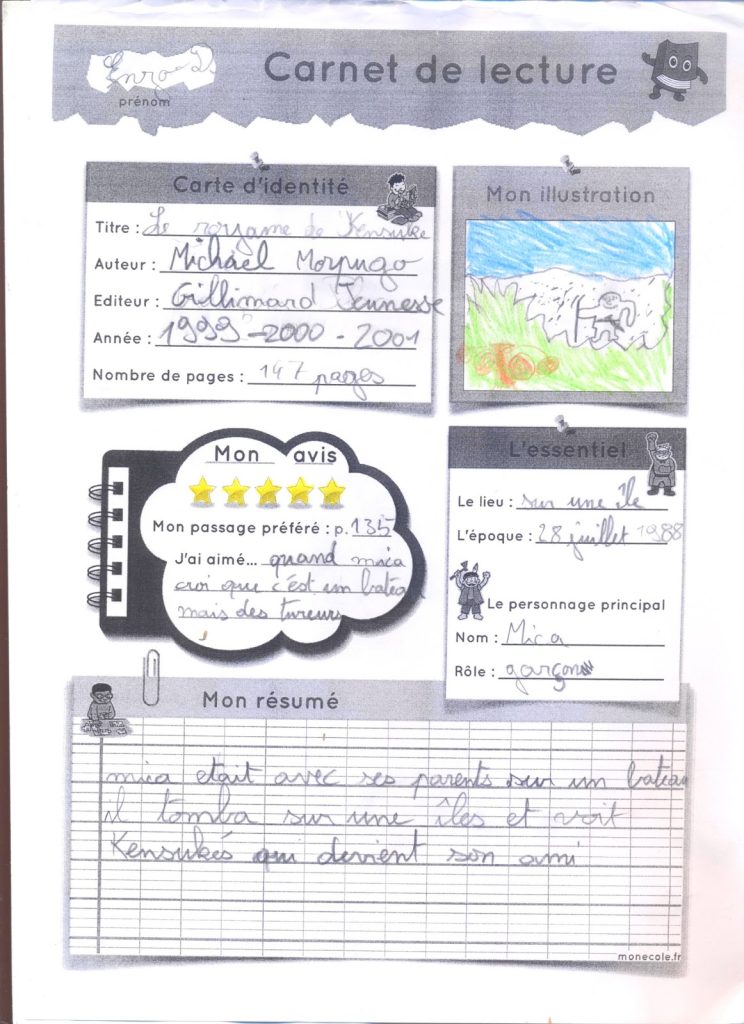 Enzo
prénom
Carnet de lecture
Carte d'identité
Titre : Le royame de Kensuké
Auteur : Michael Morpugo
Editeur : Gillimard Jeunesse
Année : 1999 - 2000 - 2001
Nombre de pages : 147 pages
Mon illustration
Mon avis
Mon passage préféré : p. 135
J'ai aimé... quand mica
croi que c'est un bateau
mais des tueurs
L'essentiel
Le lieu : sur une île
L'époque : 28 juillet 1988
Le personnage principal
Nom : Mica
Rôle : garçon
Mon résumé
mica etait avec ses parents sur un bateau
il tomba sur une îles et voit
Kensukés qui devient son ami
monecole.fr